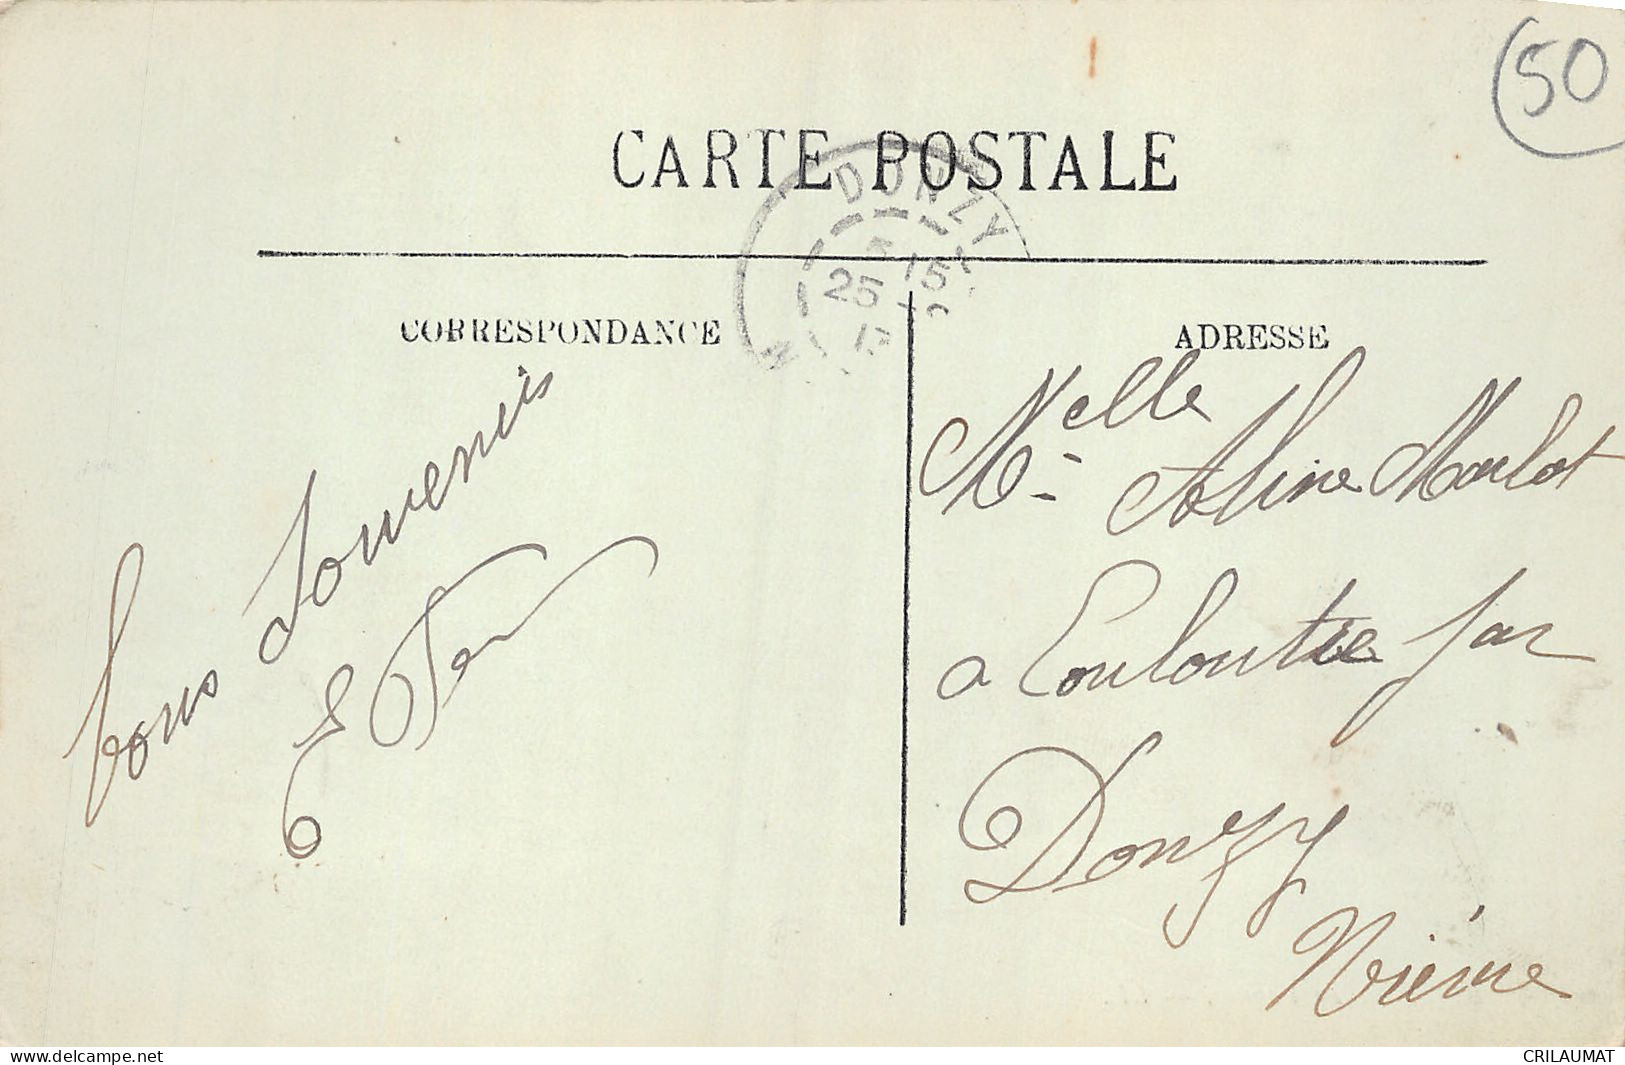 50
CARTE POSTALE
DONZY
15
25
CORRESPONDANCE
ADRESSE
bons Souvenirs
Melle Aline Marlot
a Couloutre par
Donzy
Nièvre
www.delcampe.net
CRILAUMAT